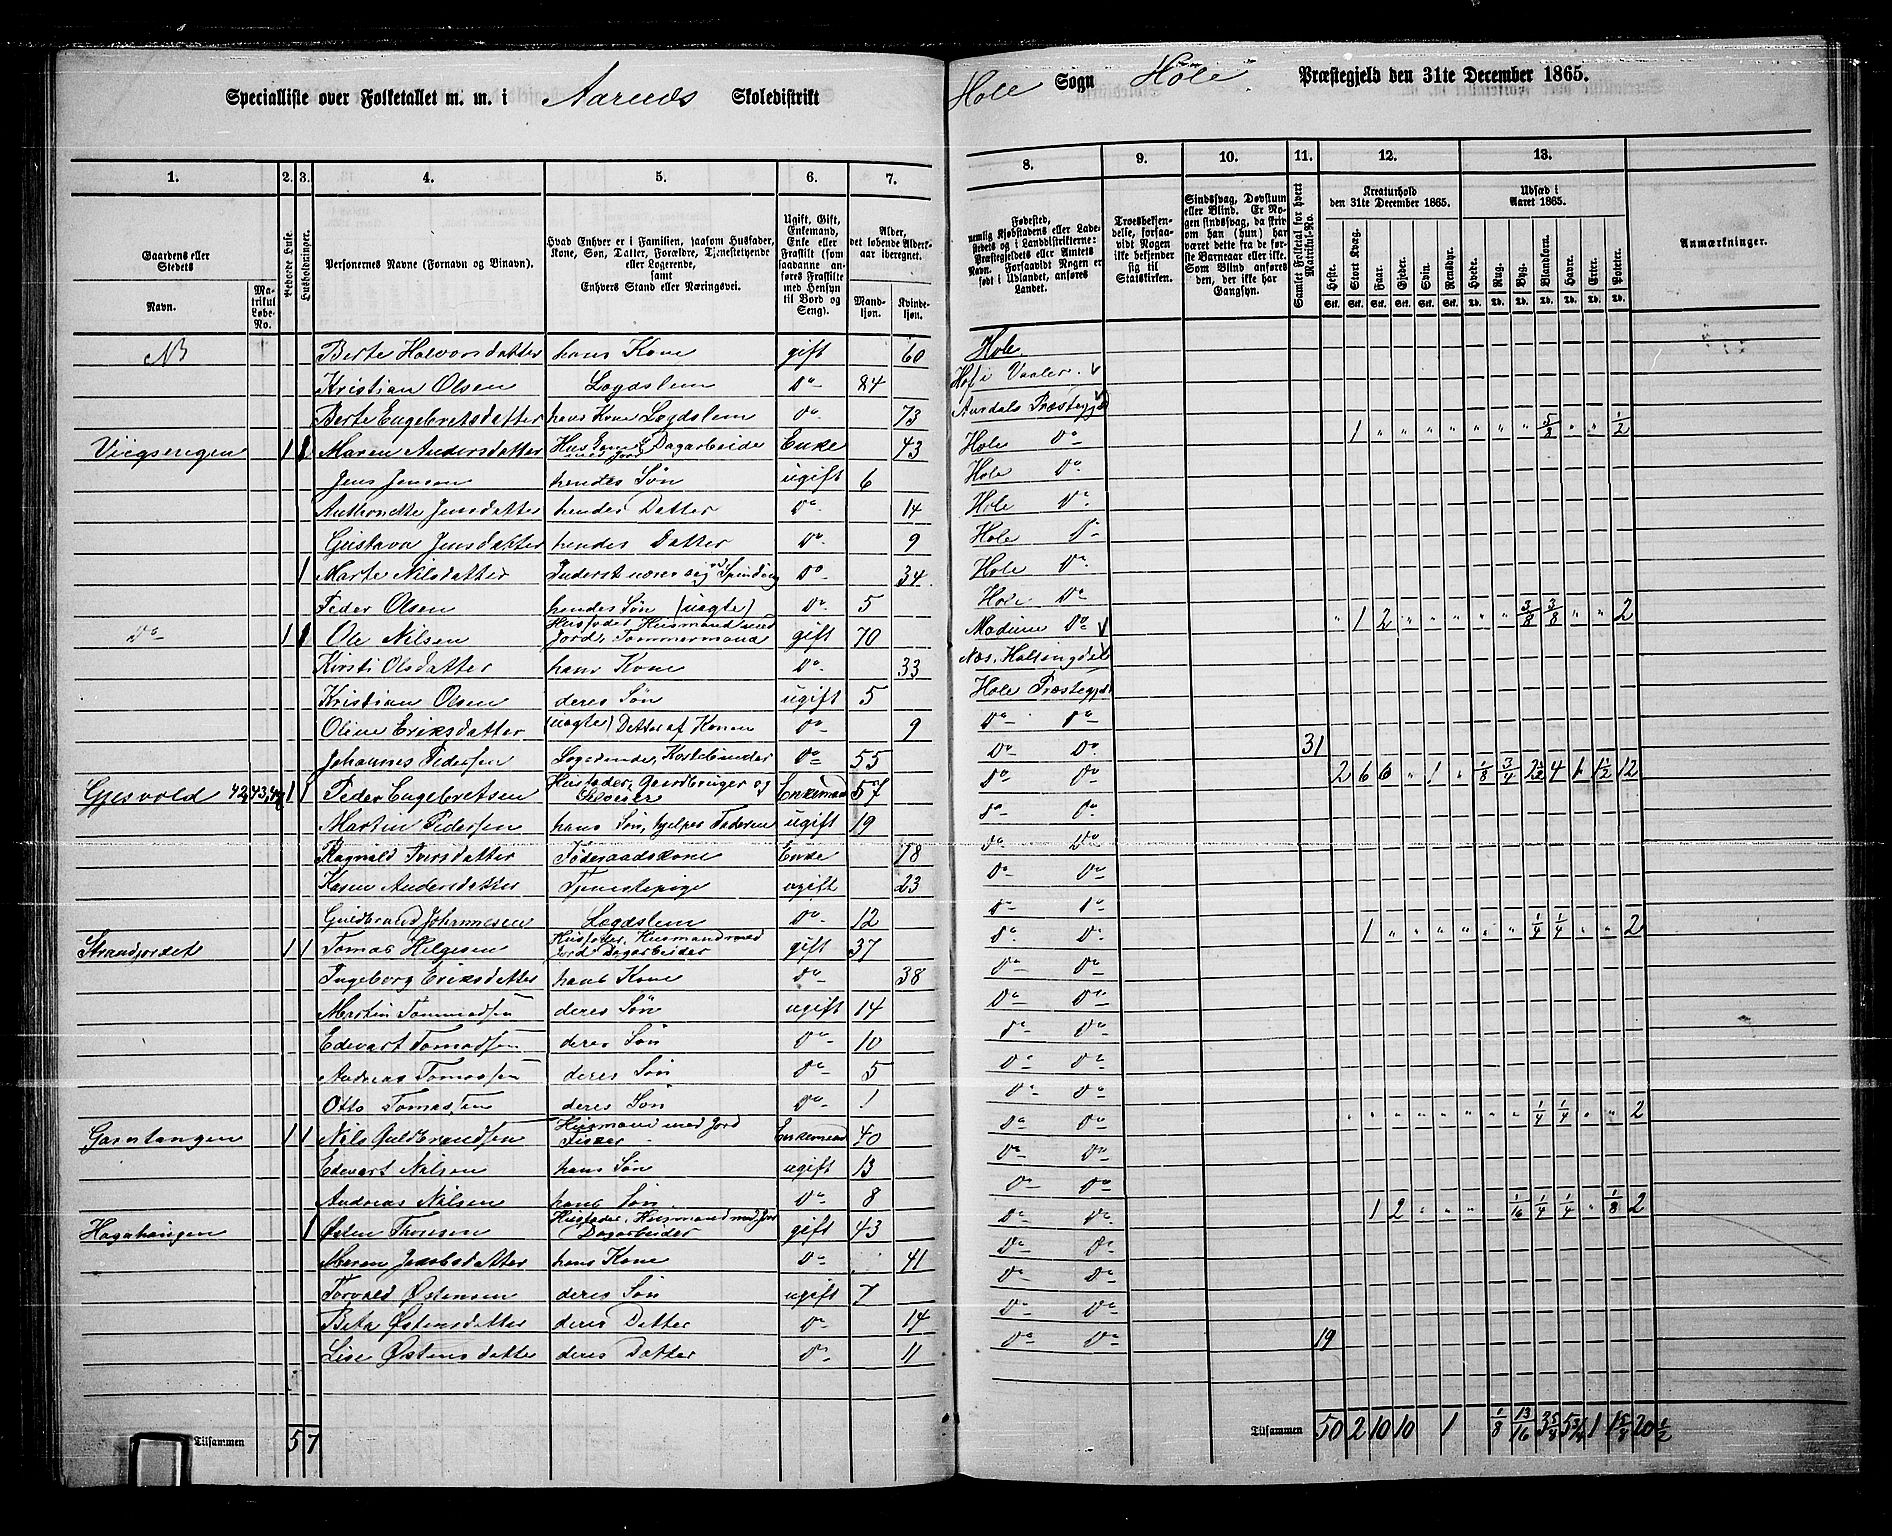 Specialliste over Folketallet m. m. i Aarnæs Skoledistrikt
Hole Sogn Hole Præstegjeld den 31te December 1865.
1. 2. 3. 4. 5. 6. 7. 8. 9. 10. 11. 12. 13.
Gaardens eller Stedets
Navn. Matrikul Løbe-No.
Beboede Huse.
Husholdninger.
Personernes Navne (Fornavn og Binavn).
Hvad Enhver er i Familien, saasom Husfader, Kone, Søn, Datter, Forældre, Tjenestetyende eller Logerende, samt Enhvers Stand eller Næringsvei.
Ugift, Gift, Enkemand, Enke eller Fraskilt (som saadanne anføres Fraskilte med Hensyn til Bord og Seng).
Alder, det løbende Alders-aar iberegnet.
Mandkjøn. Kvindekjøn.
Fødested, nemlig Kjøbstadens eller Ladestedets og i Landdistrikterne: Præstegjeldets eller Amtets Navn. Forsaavidt Nogen er født i Udlandet, anføres Landet.
Troesbekjendelse, forsaavidt Nogen ikke bekjender sig til Statskirken.
Sindssvag, Døvstum eller Blind. Er Nogen sindssvag, da skrives om han (hun) har været dette fra de første Barneaar eller ikke. Som Blind anføres den, der ikke har Gangsyn.
Samlet Folketal for hvert Matrikul-No.
Kreaturhold den 31te December 1865.
Heste. Stort Kvæg. Faar. Gjeder. Svin. Rensdyr.
Udsæd i Aaret 1865.
Hvede. Rug. Byg. Blandkorn. Havre. Erter. Poteter.
Anmærkninger.
Berte Halvorsdatter hans Kone gift 60 Hole
Kristian Olsen Lægdslem Do 84 Hof i Vaaler
Berte Engebretsdatter hans Kone Lægdslem Do 73 Aurdals Præstegjd
1 1 Maren Andersdatter Dagarbeide Enke 43 Hole Do 1 5/8 1/2
Jens Jensen hendes Søn ugift 6 Hole Do
Anthonette Jensdatter hendes Datter Do 14 Hole Do
Gustava Jensdatter hendes Datter Do 9 Hole Do
1 Marte Nilsdatter Inderst nærer sig Spinding Do 34 Hole Do
Peder Olsen hendes Søn (uægte) Do 5 Hole Do
Do 1 1 Ole Nilsen Husfader, Husmand med Jord, Tømmermand gift 70 Modum Do 1 2 3/8 3/8 2
Kirsti Olsdatter hans Kone Do 33 Næs, Hallingdal
Kristian Olsen deres Søn ugift 5 Hole Præstegjd
Oline Eriksdatter (uægte) Datter af Konen Do 9 Do Do
Johannes Pedersen Logerende, Kostebinder Do 55 Do Do 31
Gjesvold 42, 43, 1 1 Peder Engebretsen Husfader, Gaardbruger og Selveier Enkemand 57 Do Do 2 6 6 1 1/8 3/4 2 1/2 4 1 1 1/2 12
Martin Pedersen hans Søn, hjelper Faderen ugift 19 Do Do
Ragnild Iversdatter Føderaadskone Enke 78 Do Do
Karen Andersdatter Tjenestepige ugift 23 Do Do
Guldbrand Johannesen Lægdslem Do 12 Do Do
1 1 Tomas Helgesen Husfader, Husmand med Jord Dagarbeider gift 37 Do Do 1 1/4 1/4 2
Ingeborg Eriksdatter hans Kone Do 38 Do Do
Martin Tommasen deres Søn ugift 14 Do Do
Edevart Tomassen deres Søn Do 10 Do Do
Andreas Tomassen deres Søn Do 5 Do Do
Otto Tomassen deres Søn Do 1 Do Do
Garntangen 1 1 Nils Guldbrandsen Husmand med Jord Fisker Enkemand 40 Do Do 1/4 1/4 2
Edevart Nilsen hans Søn ugift 13 Do Do
Andreas Nilsen hans Søn Do 8 Do Do
Hagahaugen 1 Østen Thoresen Husfader, Husmand med Jord Dagarbeider gift 43 Do Do 1 2 1/16 1/4 1/4 1/8 2
Maren Jacobsdatter hans Kone Do 41 Do Do
Torvald Østensen deres Søn ugift 7 Do Do
Beta Østensdatter deres Datter Do 14 Do Do
Lise Østensdatter deres Datter Do 11 Do Do 19
Tilsammen 5 7
Tilsammen 50 2 10 10 1 1/8 13/16 3 5/8 5 3/4 1 1 5/8 20 1/2